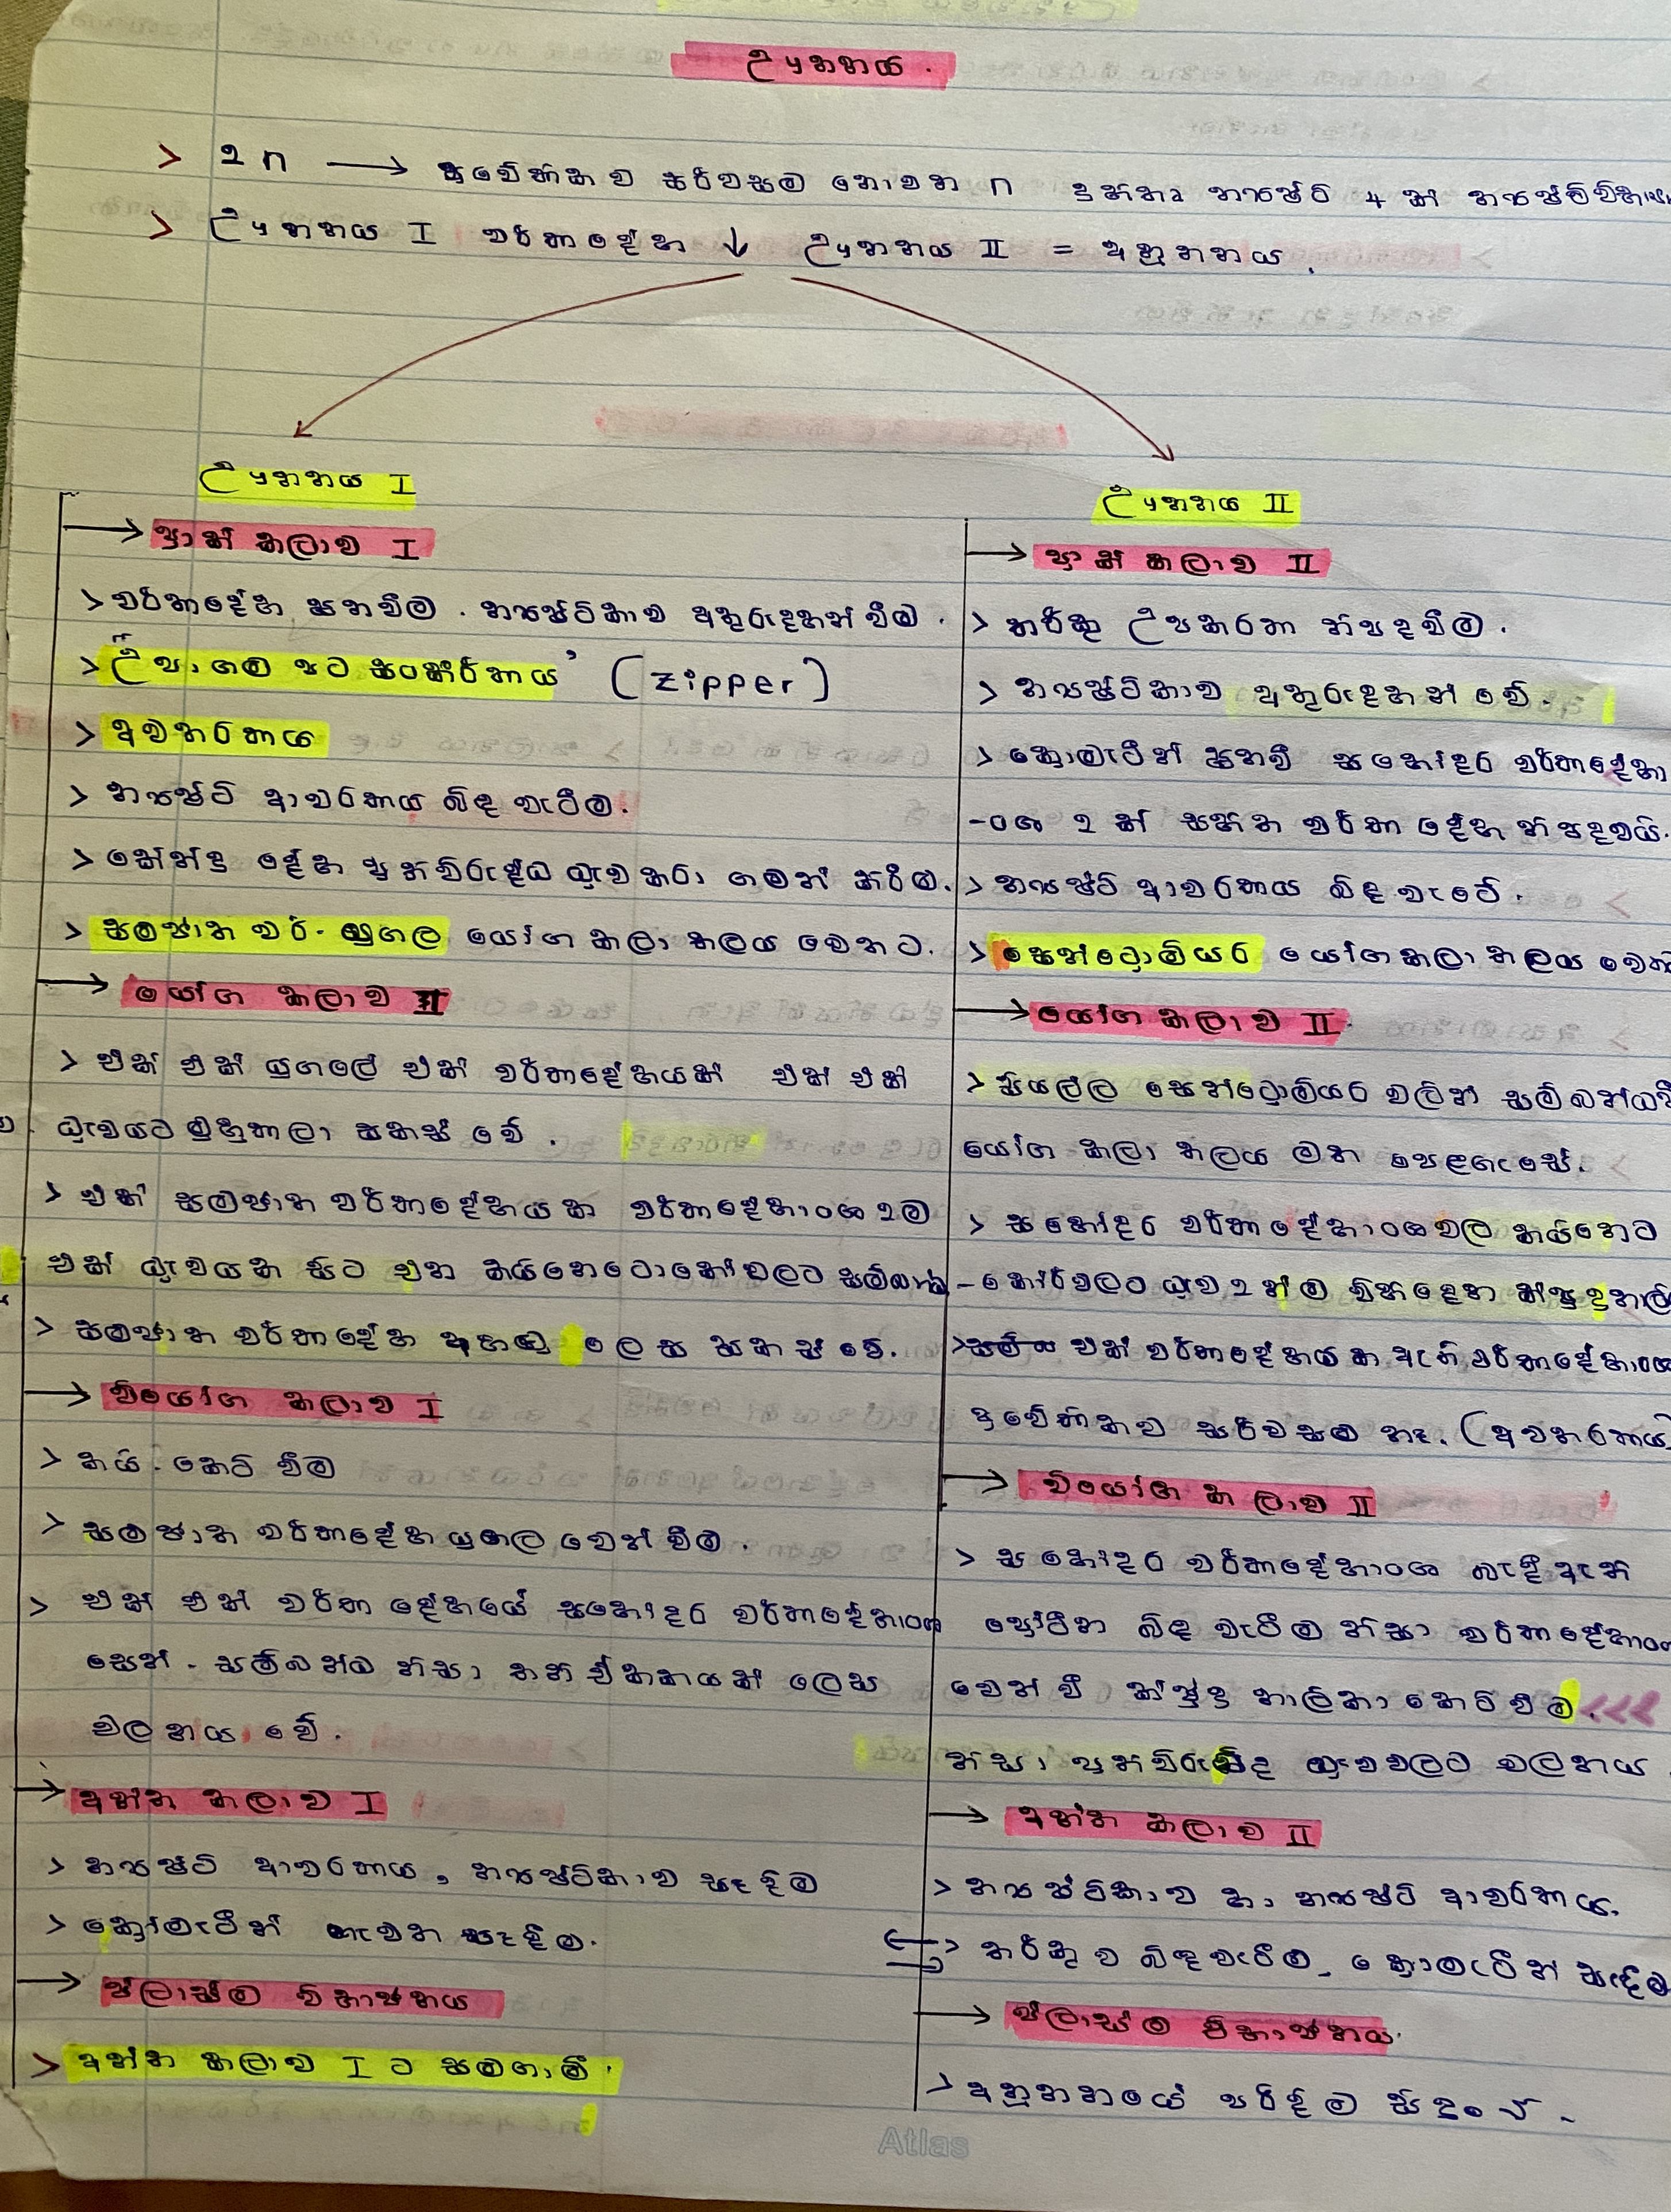 ඌනනය.
> 2n → ප්‍රවේණිකව සර්වසම නොවන n දුහිතෘ න්‍යෂ්ටි 4 ක් න්‍යෂ්ටි
> ඌනනය I වර්ණදේහ ↓ ඌනනය II = අනූනනය.
ඌනනය I
→ ප්‍රාක් කලාව I
> වර්ණදේහ ඝනවීම. න්‍යෂ්ටිකාව අතුරුදහන් වීම.
> උපාගම පට සංකීර්ණය (zipper)
> අවතරණය
> න්‍යෂ්ටි ආවරණය බිඳ වැටීම.
> කේන්ද්‍ර දේහ ප්‍රතිවිරුද්ධ ධ්‍රැව කරා ගමන් කිරීම.
> සමජාත වර්. යුගල යෝග කලා තලය වෙතට.
→ යෝග කලාව II
> එක් එක් යුගලේ එක් වර්ණදේහයක් එක් එක්
ධ්‍රැවයට මුහුණලා සකස් වේ.
> එක් සමජාත වර්ණදේහයක වර්ණදේහාංශ 2ම
එක් ධ්‍රැවයක සිට එන කයිනෙටොකෝවලට සම්බන්ධ
> සමජාත වර්ණදේහ අහඹු ලෙස සකස් වේ.
→ වියෝග කලාව I
> කයි. කෙටි වීම
> සමජාත වර්ණදේහ යුගල වෙන් වීම.
> එක් එක් වර්ණදේහයේ සහෝදර වර්ණදේහාංශ
සෙන්. සම්බන්ධ නිසා තනි ඒකකයක් ලෙස
චලනය වේ.
→ අන්ත කලාව I
> න්‍යෂ්ටි ආවරණය, න්‍යෂ්ටිකාව සෑදීම
> ක්‍රොමැටින් නැවත සෑදීම.
→ ප්ලාස්ම විභාජනය
> අන්ත කලාව I ට සමගාමී.
ඌනනය II
→ ප්‍රාක් කලාව II
> තර්කු උපකරණ නිපදවීම.
> න්‍යෂ්ටිකාව අතුරුදහන් වේ.
> ක්‍රොමැටින් ඝනවී සහෝදර වර්ණදේහා
-ංශ 2 ක් සහිත වර්ණදේහ නිපදවයි.
> න්‍යෂ්ටි ආවරණය බිඳ වැටේ.
> සෙන්ට්‍රොමියර යෝග කලා තලය වෙත
→ යෝග කලාව II
> සියල්ල සෙන්ට්‍රොමියර වලින් සම්බන්ධ
යෝග කලා තලය මත පෙළගැසේ.
> සහෝදර වර්ණදේහාංශවල කයිනෙට
-කෝර්වලට ධ්‍රැව 2 න්ම විහිදෙන ක්ෂුද්‍ර නාලි
> එක් වර්ණදේහයක ඇති වර්ණදේහාංශ
ප්‍රවේණිකව සර්වසම නෑ. (අවතරණය)
→ වියෝග කලාව II
> සහෝදර වර්ණදේහාංශ බැඳී ඇති
ප්‍රෝටීන බිඳ වැටීම නිසා වර්ණදේහාංශ
වෙන් වී ක්ෂුද්‍ර නාලිකා කෙටි වීම.
නිසා ප්‍රතිවිරුද්ධ ධ්‍රැවවලට චලනය.
→ අන්ත කලාව II
> න්‍යෂ්ටිකාව හා න්‍යෂ්ටි ආවරණය.
> තර්කුව බිඳවැටීම, ක්‍රොමැටින් සෑදීම
→ ප්ලාස්ම විභාජනය.
> අනූනනයේ පරිදිම සිදුවේ.
Atlas